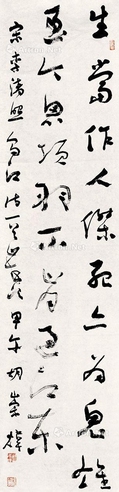 生當作人傑死亦為鬼雄
至今思項羽不肯過江東
宋李清照烏江詩一首 甲午胡崇煒